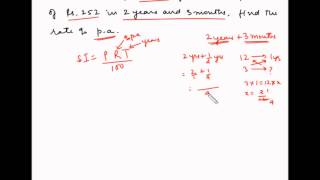 of Rs. 252 in 2 years and 3 months, find the
rate % p.a.
SI = P R T
100
% p.a.
years
2 years + 3 months
2 yrs + 1/4 yrs
= 2/1 + 1/4
=
4
12 → 1 yrs
3 → ?
3 × 1 = 12 × x
x = 3 1
4